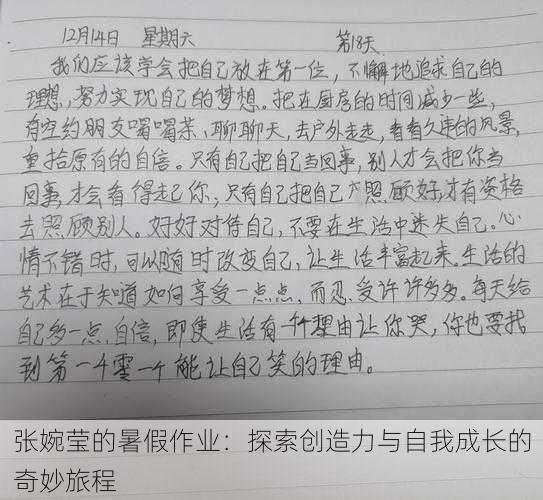 12月14日 星期六 第18天
我们应该学会把自己放在第一位，不懈地追求自己的
理想，努力实现自己的梦想。把在厨房的时间减少一些，
有空约朋友喝喝茶、聊聊天，去户外走走，看看久违的风景，
重拾原有的自信。只有自己把自己当回事，别人才会把你当
回事，才会看得起你，只有自己把自己照顾好，才有资格
去照顾别人。好好对待自己，不要在生活中迷失自己。心
情不错时，可以随时改变自己，让生活丰富起来。生活的
艺术在于知道如何享受一点点，而忍受许许多多。每天给
自己多一点自信，即使生活有一千个理由让你哭，你也要找
到第一千零一个能让自己笑的理由。
张婉莹的暑假作业：探索创造力与自我成长的
奇妙旅程